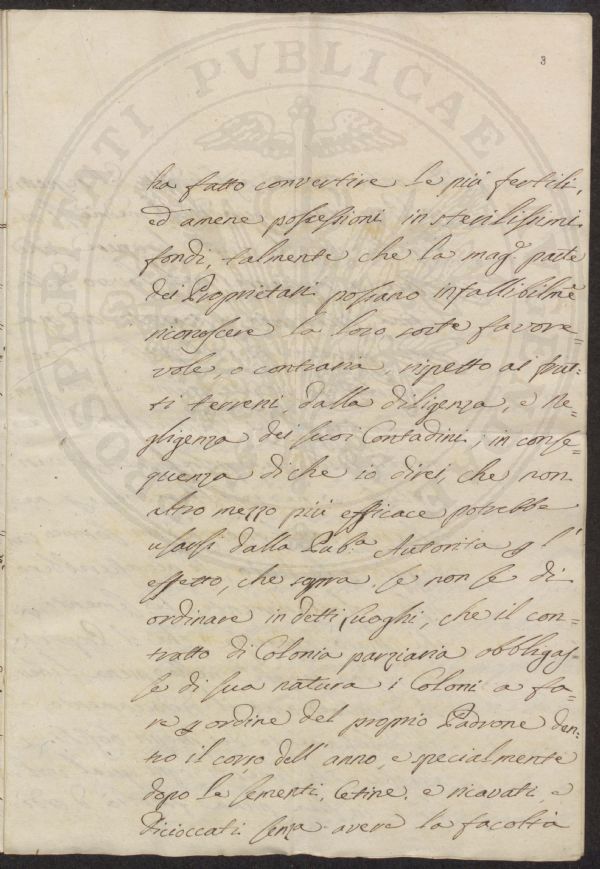 PROSPERITATI PVBLICAE
3
ha fatto convertire le più fertili,
ed amene possessioni in sterilissimi
fondi, talmente che la mag.r parte
dei Proprietarj possano infallibilmē
riconoscere la loro sorte favore=
vole, o contraria, rispetto ai frut=
ti terreni, dalla diligenza, e ne=
gligenza dei suoi Contadini; in conse=
guenza di che io direi, che non
altro mezzo più efficace potrebbe
usarsi dalla Pub.a Autorità p l'
effetto, che sopra, se non se di
ordinare in detti Luoghi, che il con=
tratto di Colonia parziaria obbligas=
se di sua natura i Coloni a fa=
re p ordine del proprio Padrone den=
tro il corso dell'anno, e specialmente
dopo le sementi, Cetine, e ricavati, e
Dicioccati senza avere la facoltà